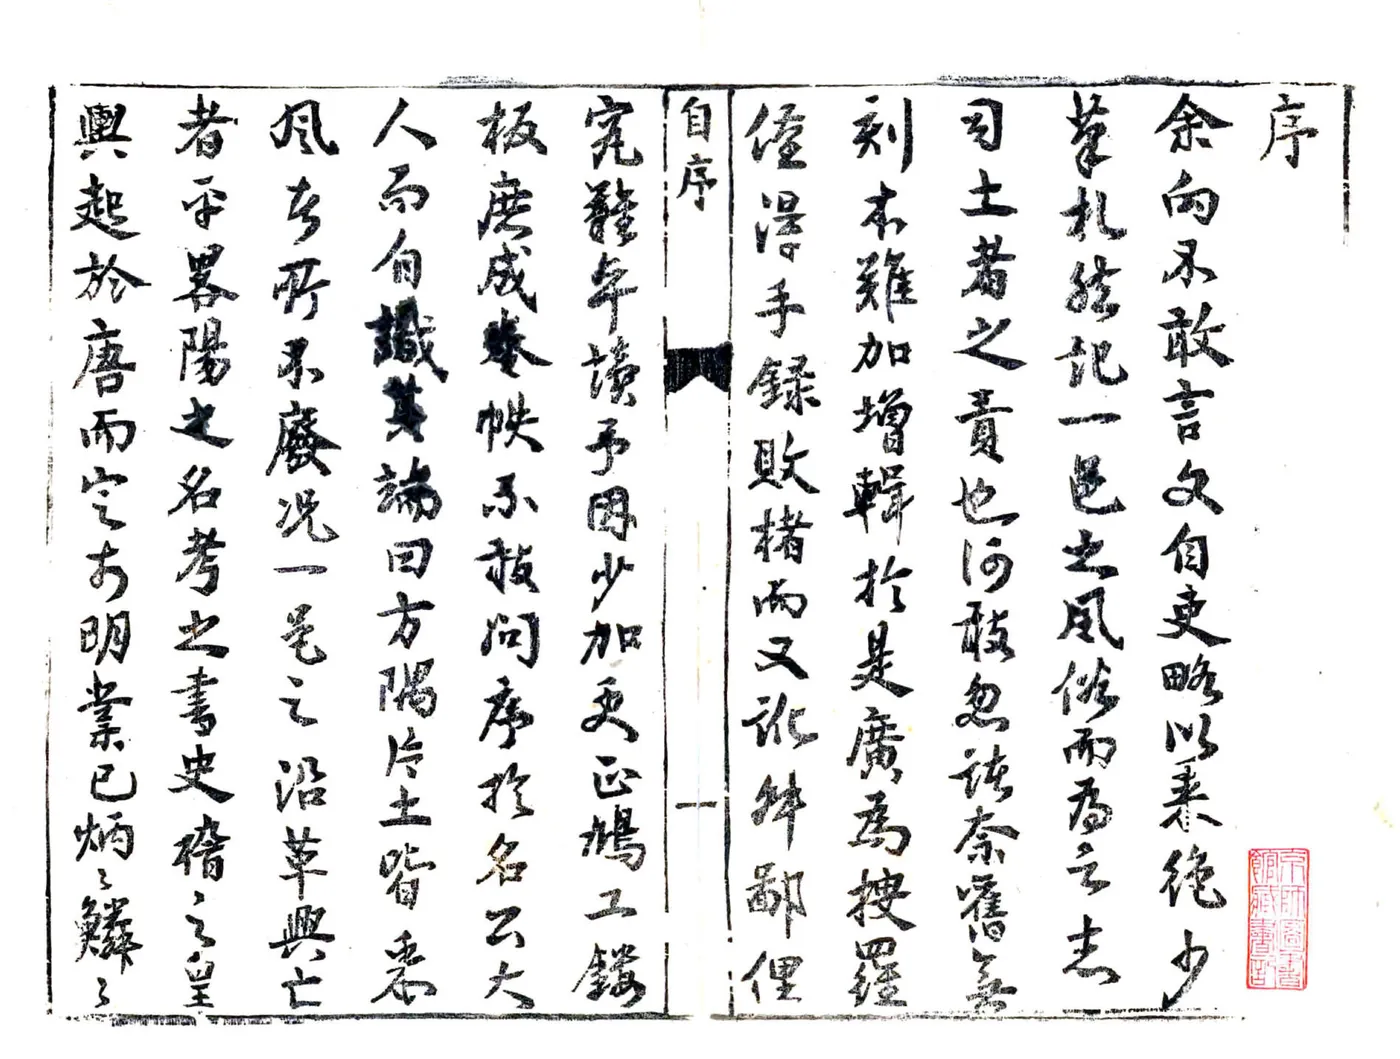 序
余向不敢言文自吏略以来绝少
筆札然記一邑之風俗而為之志
司土者之責也何敢忽諸奈舊無
刻本難加增輯於是廣為搜羅
僅淂手錄敗楮而又訛舛鄙俚
自序
一
究難卒讀予因少加更正鳩工鋟
板庶成卷帙不敢問序於名公大
人而自識其端曰方隅片土皆
風古所不廢况一邑之沿革興亡
者乎畧陽之名考之書史稽之皇
輿起於唐而定於明業已炳〻鱗〻
京師圖書館藏書記